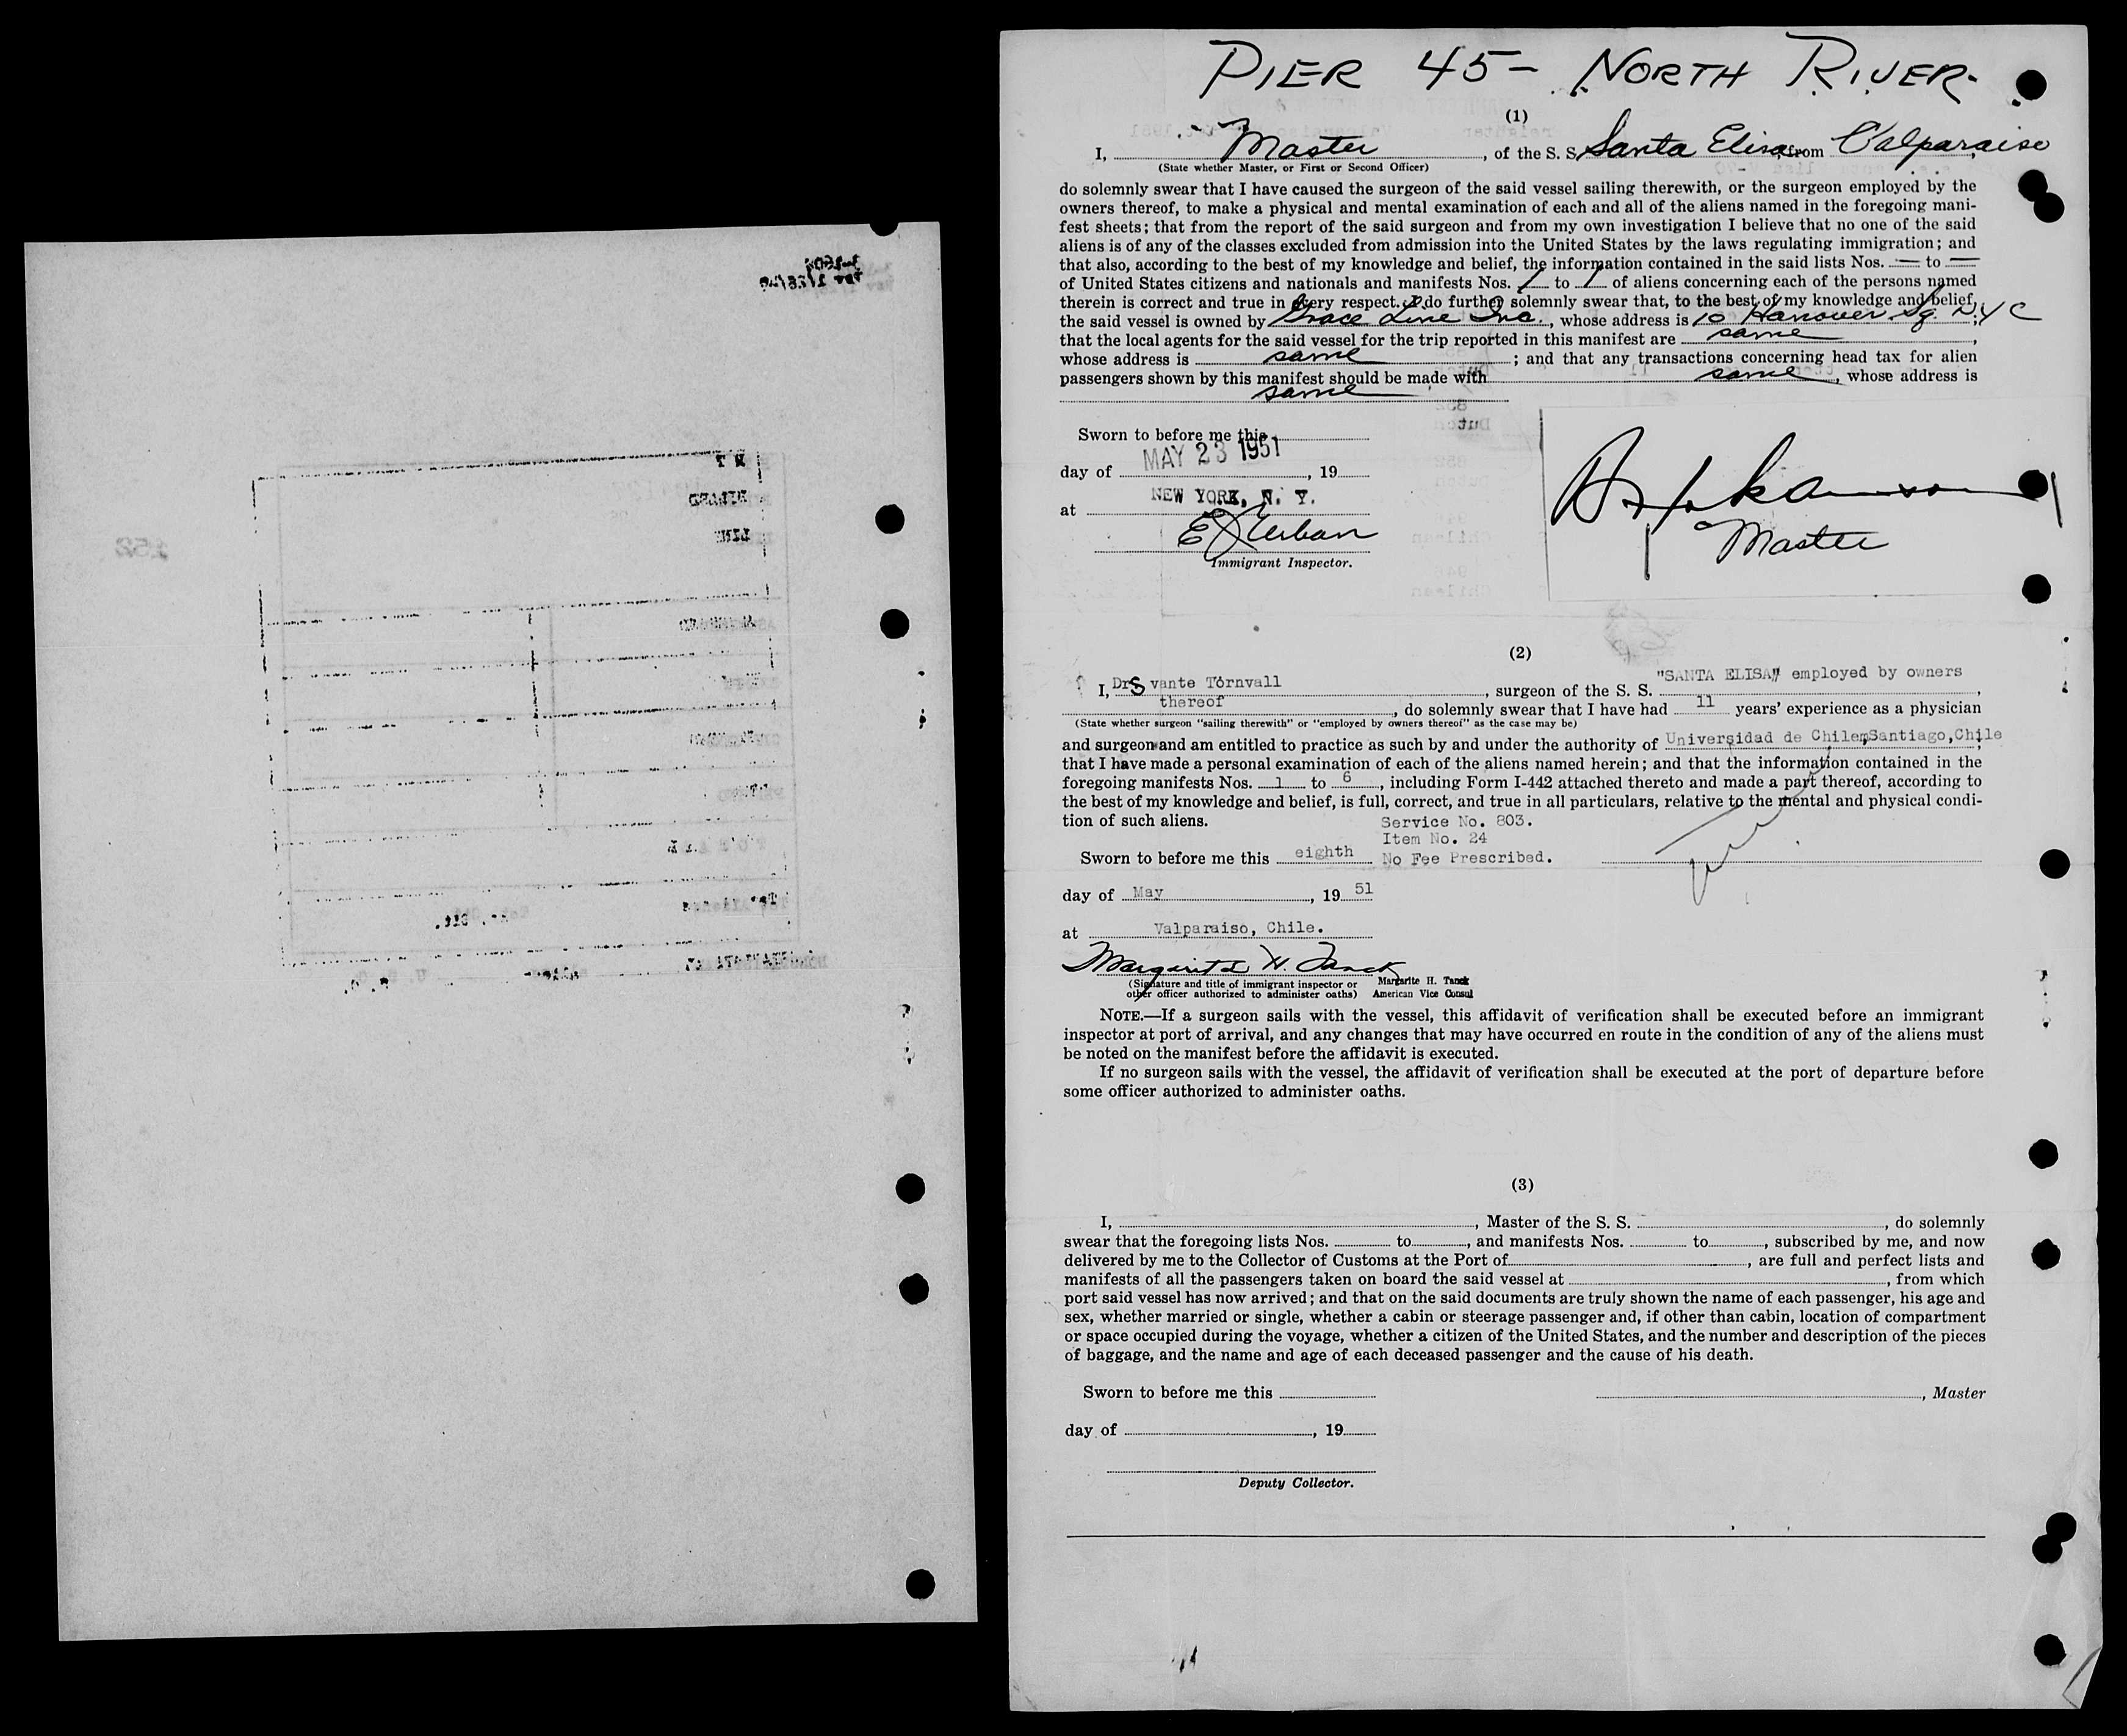 PIER 45- NORTH RIVER.
(1)
I, Master, of the S. S. Santa Elisa, from Valparaiso,
(State whether Master, or First or Second Officer)
do solemnly swear that I have caused the surgeon of the said vessel sailing therewith, or the surgeon employed by the
owners thereof, to make a physical and mental examination of each and all of the aliens named in the foregoing mani-
fest sheets; that from the report of the said surgeon and from my own investigation I believe that no one of the said
aliens is of any of the classes excluded from admission into the United States by the laws regulating immigration; and
that also, according to the best of my knowledge and belief, the information contained in the said lists Nos. — to —
of United States citizens and nationals and manifests Nos. 1 to 1 of aliens concerning each of the persons named
therein is correct and true in every respect. I do further solemnly swear that, to the best of my knowledge and belief,
the said vessel is owned by Grace Line Inc., whose address is 10 Hanover Sq. N.Y C
that the local agents for the said vessel for the trip reported in this manifest are same,
whose address is same; and that any transactions concerning head tax for alien
passengers shown by this manifest should be made with same, whose address is
same
Sworn to before me this
day of MAY 23 1951, 19
at NEW YORK, N. Y.
E J Urban
Immigrant Inspector.
Master
(2)
I, Dr Svante Törnvall, surgeon of the S. S. "SANTA ELISA" employed by owners,
thereof, do solemnly swear that I have had 11 years' experience as a physician
(State whether surgeon "sailing therewith" or "employed by owners thereof" as the case may be)
and surgeon and am entitled to practice as such by and under the authority of Universidad de Chile, Santiago, Chile;
that I have made a personal examination of each of the aliens named herein; and that the information contained in the
foregoing manifests Nos. 1 to 6, including Form I-442 attached thereto and made a part thereof, according to
the best of my knowledge and belief, is full, correct, and true in all particulars, relative to the mental and physical condi-
tion of such aliens.
Service No. 803.
Item No. 24
Sworn to before me this eighth No Fee Prescribed.
day of May, 19 51
at Valparaiso, Chile.
Margarite H. Tanck
(Signature and title of immigrant inspector or Margarite H. Tanck
other officer authorized to administer oaths) American Vice Consul
NOTE.—If a surgeon sails with the vessel, this affidavit of verification shall be executed before an immigrant
inspector at port of arrival, and any changes that may have occurred en route in the condition of any of the aliens must
be noted on the manifest before the affidavit is executed.
If no surgeon sails with the vessel, the affidavit of verification shall be executed at the port of departure before
some officer authorized to administer oaths.
(3)
I, , Master of the S. S. , do solemnly
swear that the foregoing lists Nos. to , and manifests Nos. to , subscribed by me, and now
delivered by me to the Collector of Customs at the Port of , are full and perfect lists and
manifests of all the passengers taken on board the said vessel at , from which
port said vessel has now arrived; and that on the said documents are truly shown the name of each passenger, his age and
sex, whether married or single, whether a cabin or steerage passenger and, if other than cabin, location of compartment
or space occupied during the voyage, whether a citizen of the United States, and the number and description of the pieces
of baggage, and the name and age of each deceased passenger and the cause of his death.
Sworn to before me this , Master
day of , 19
Deputy Collector.